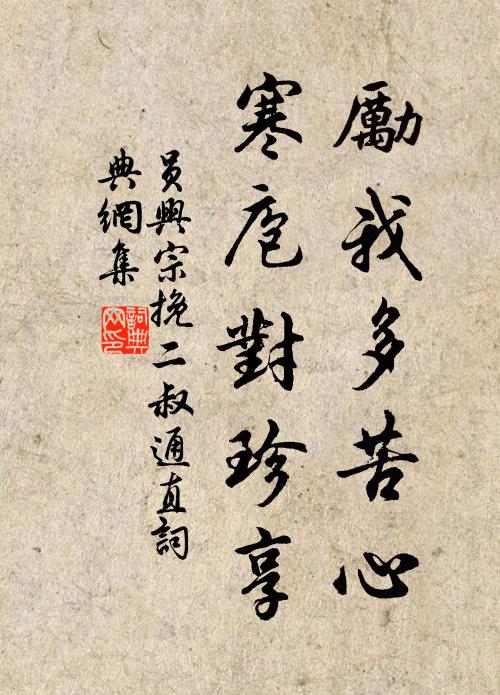 勵我多苦心
寒庖對珍享
员興宗挽二叔通直詞
典網集
詞典網印